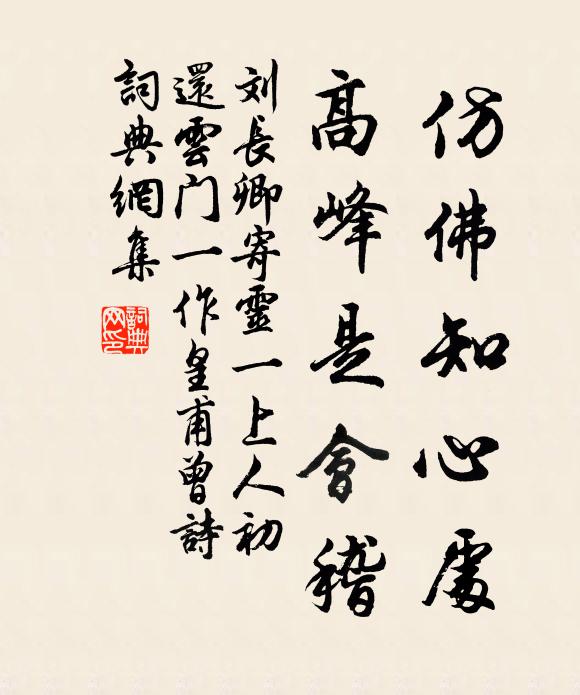 仿佛知心處
高峰是會稽
刘長卿寄靈一上人初
還雲门一作皇甫曾詩
詞典網集
詞典
网印